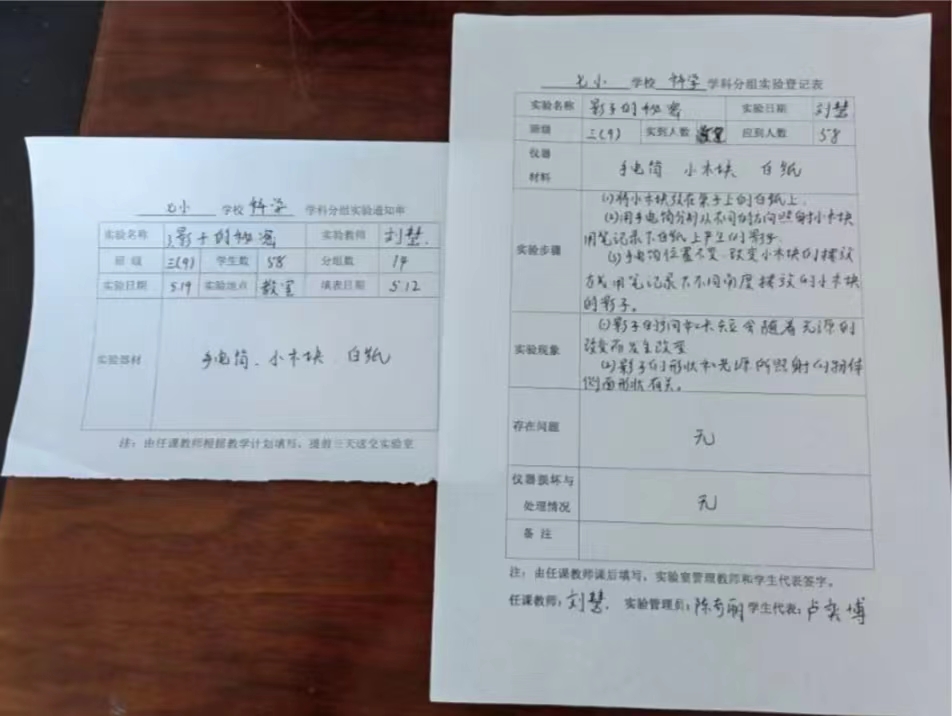 七小 学校 科学 学科分组实验通知单
实验名称 影子的秘密 实验教师 刘慧
班级 三(9) 学生数 58 分组数 14
实验日期 5.19 实验地点 教室 填表日期 5.12
实验器材 手电筒、小木块 白纸
注：由任课教师根据教学计划填写，提前三天送交实验室
七小 学校 科学 学科分组实验登记表
实验名称 影子的秘密 实验日期 刘慧
班级 三(9) 实到人数 应到人数 58
仪器
材料
手电筒 小木块 白纸
实验步骤
(1)将小木块放在桌子上的白纸上.
(2)用手电筒分别从不同的方向照射小木块
用笔记录下白纸上产生的影子.
(3)手电筒位置不变,改变小木块的摆放
方式,用笔记录下不同角度摆放的小木块
的影子。
实验现象
(1)影子的方向和长短会随着光源的
改变而发生改变
(2)影子的形状和光源所照射的物体
侧面形状有关。
存在问题 无
仪器损坏与
处理情况
无
备注
注：由任课教师课后填写，实验室管理教师和学生代表签字。
任课教师：刘慧. 实验管理员：陈奇丽 学生代表：卢奕博